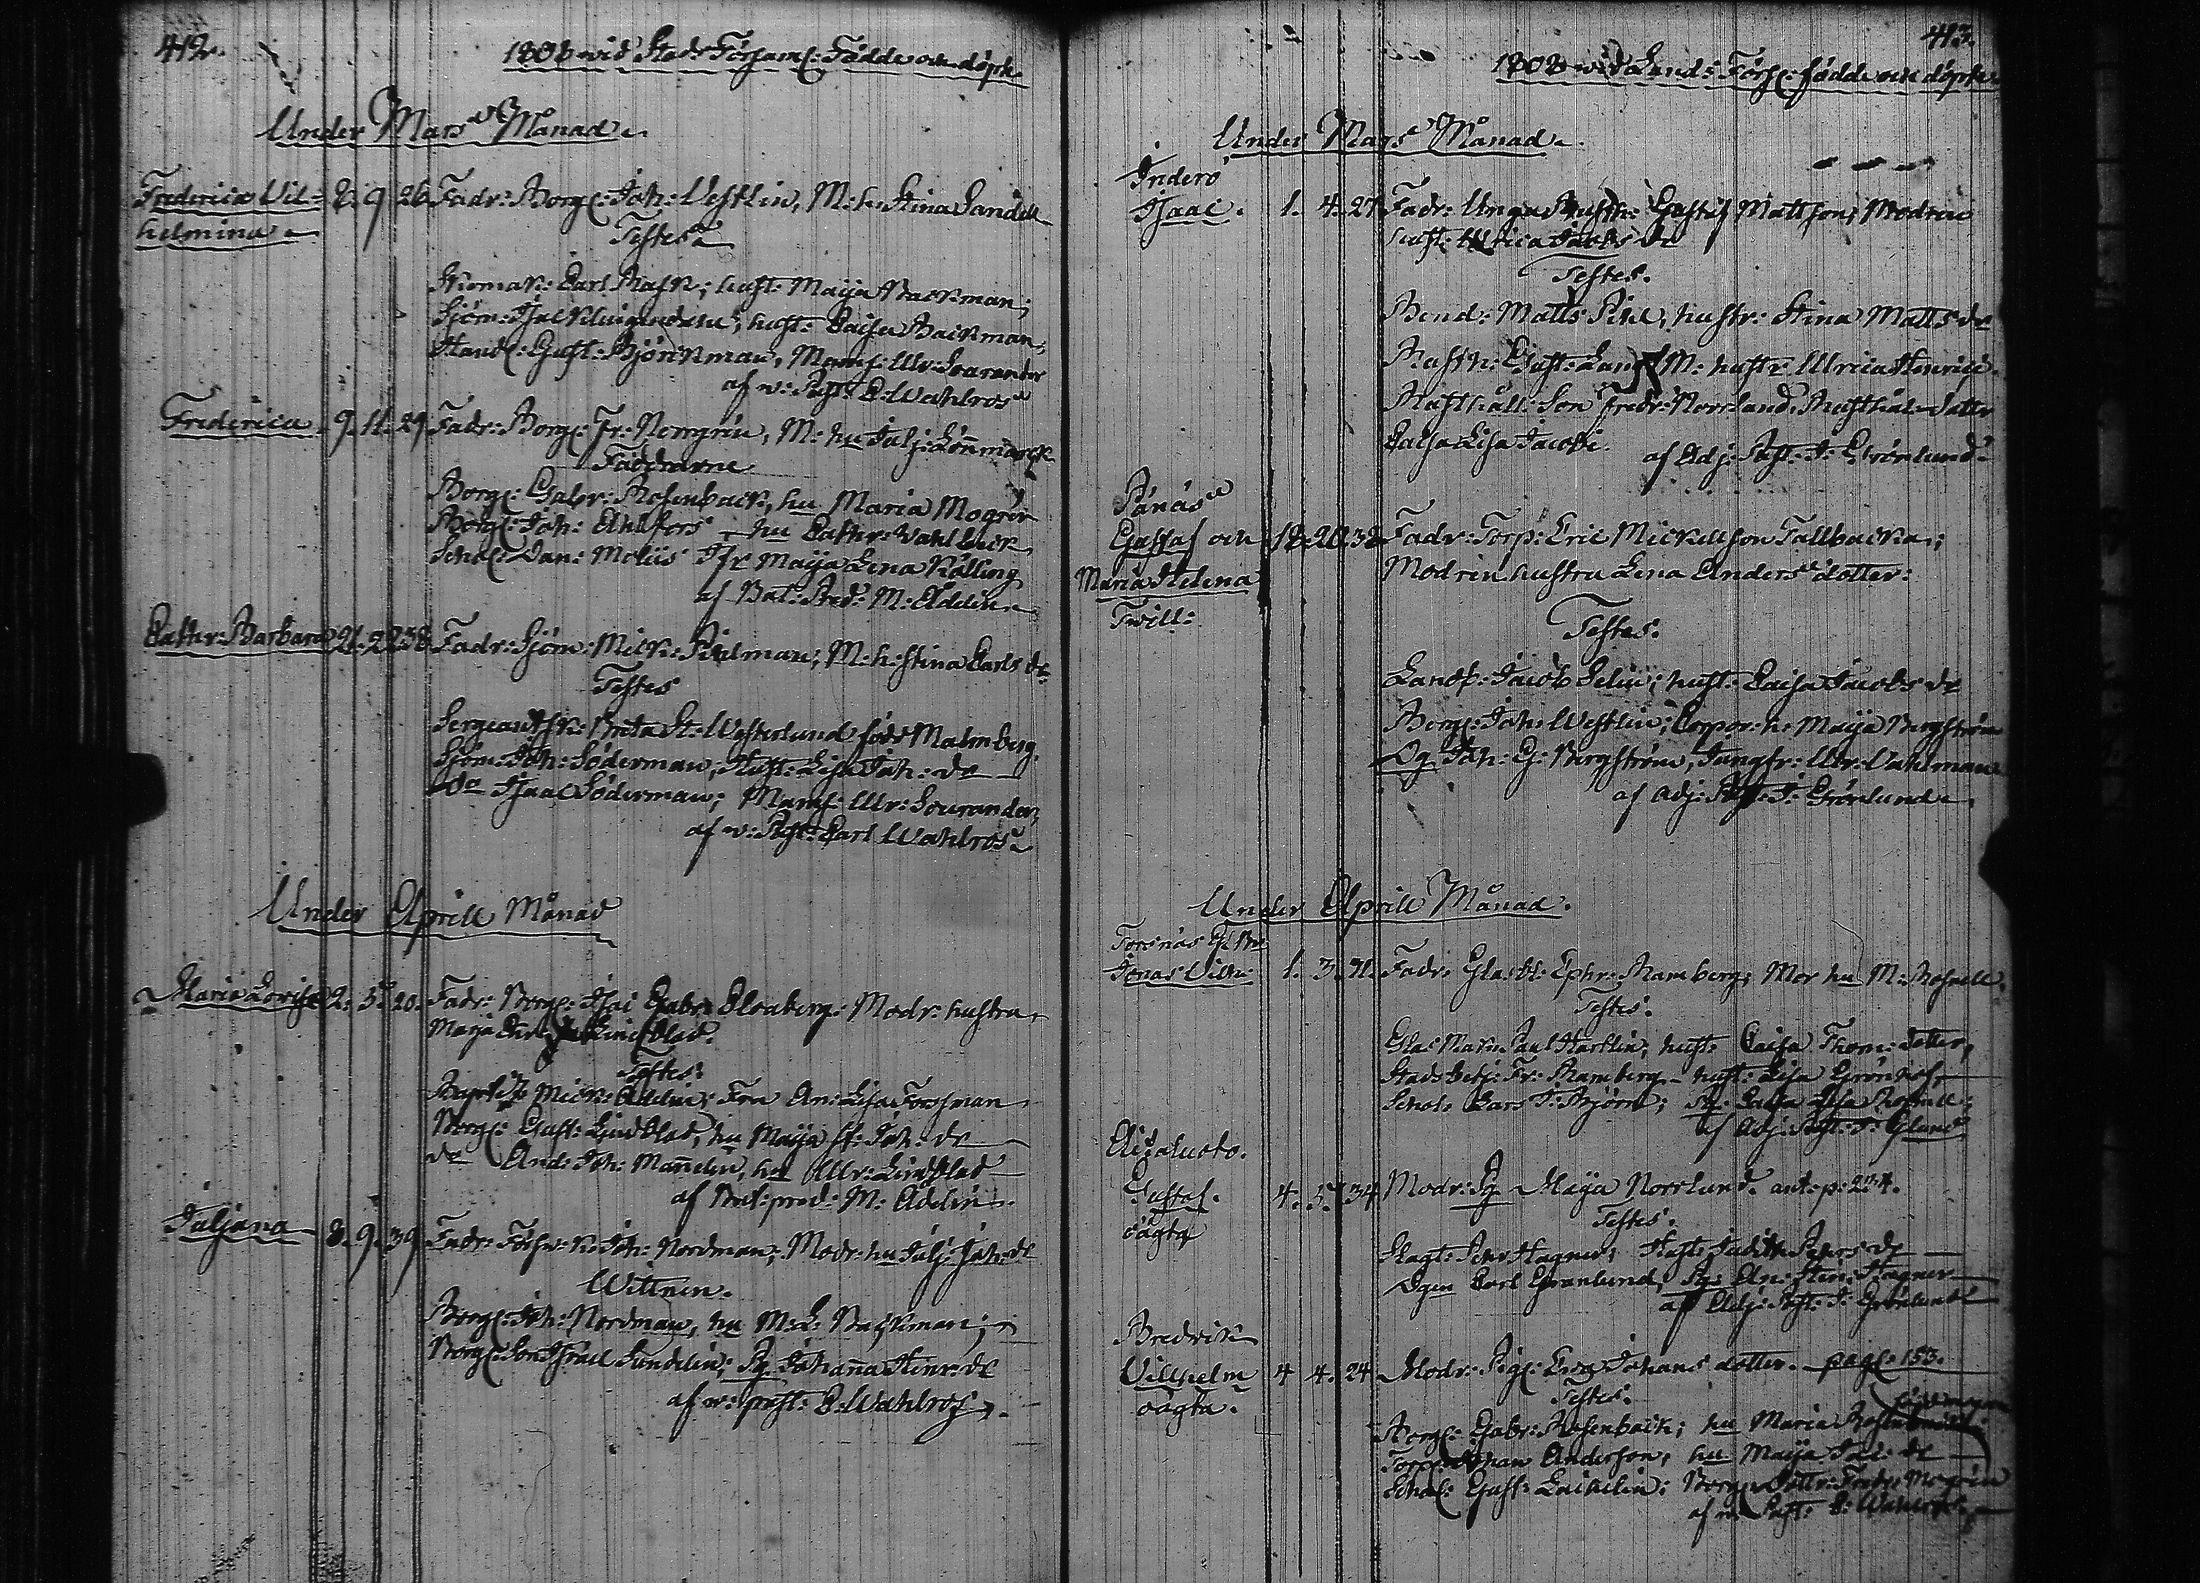 412.
1808 wid Stads Församl: Födde och döpte
Under Mars Månad
Frederica Wil= 8. 9. 26. Fadr: Borg: Joh: Westlin, M: h: Stina Sandell
helmina
Testes
Carl Rask; hust: Maija Backman;
Sjöm: Isac Klingendahl, hust: Caisa Backman,
Handl: Gust: Björkman, Mams: Ulr: Sourander
af v: Past: C: Wahlros
Frederica 9. 11. 29 Fadr: Borg: Fr: Norrgrén, M: hu Julj: Lönnmarck
Faddrarne
Borg: Gabr: Rosenback, hu Maria Mogrén
Borg: Joh: Ahlfors hu Cathr: Wahlbeck
Schol: Dan: Moliis Jfr Maija Lena Kölling
af Bat: Pred: M: Adelin
Cathr: Barbara 21. 22. 38 Fadr: Sjöm: Mick: Pihlman; M: h: Stina Carls dr
Testes
Sergeants h: Brita St: Westerlund född Malmberg
Sjöm: Joh: Söderman, Hust: Lisa Joh: dr
do Isaac Söderman; Mams: Ulr: Sourander,
af v: Past: Carl Wahlros
Under Aprill Månad
Maria Lovisa 2. 5. 20. Fadr: Borg: Isai Gabr: Cloberg: Modr: hustru
Maja Lindblad.
Testes:
Mick: Adelin; Fru An: Lisa Forsman
Borg: Gust: Lindblad, hu Maija St: Joh: dr
do And: Joh: Mannelin, hu Ulr: Lindblad
af Bat: pred: M: Adelin.
Juljana 8. 9. 39 Fadr: Förs: Joh: Nordman; Modr: hu Julj: Joh: dr
Wittnen.
Borg: Joh: Nordman, hu M: L: Backman;
Borg: Son Israel Sundelin; Pig: Johanna Henr: dr
af v: past: C: Wahlros.
413.
1808 wid Lands Förs: födde och döpte
Under Mars Månad
Inderö
Isaac. 1. 4. 27 Fadr: Unga Rusth: Gustaf Mattson; Modren
hust: Ulrica Jacobs dr
Testes.
Bond: Matts Pihl, hustr: Stina Matts dr
Rusth: Gust: M: hustr: Ulrica Henrics
Rusthåll: Son Fredr: Norrlund, Rusthål: Dotter
Caisa Lisa Jacobs.
af Adj: Past: J: Grönlund
Pånäs
Gustaf och 18. 20. 38 Fadr: Torp: Eric Mickelsson Tallbacka;
Maria Helena Modren hustru Lena Anders dotter:
Twill:
Testes.
Landb: Jacob Selin; hust: Caisa Jacobs dr
Borg: Joh: Westlin; Corpor: h: Maija Bergström
Dg Joh: G: Bergström, Jungfr: Ulr: Dahlman
af Adj: Past: J: Grönlund
Under Aprill Månad.
Torsnäs Gl: Br
Jonas Wilh: 1. 3. 31. Fadr: Glasbl: Ephr: Ramberg, Mor hu M: Rosnell.
Testes.
Glas Mak: Paul Hartlin; hust: Caisa Thom: dotter,
Stads Betj: Fr: Ramberg hust: Lisa Grönholm
Schol: Lars J: Björn; Pig: Caisa Lisa Rosnell;
af Adj: Past: J: Glund
Alaluoto.
Gustaf. 4. 5. 34 Modr: Pg Maija Norrlund. ant: p: 234.
oägta
Testes.
Magt: Petr Hagner; Hust: Judith Pehrs dr
Dgen Carl Granlund, Pg: An: Stin: Hagner
af Adj: Past: J: Grönlund
Bredvik
Vilhelm 4 4. 24 Modr: Pig: Eva Johans dotter. pag: 153.
oägta.
Testes.
Borg: Gabr: Rosenback; hu Maria
Torp: Johan Anderson; hu Maija dr
Schol: Gust: Laihelin; Borg: Dotter: Fredr: Mogrén
af v: Past: C: Wahlros